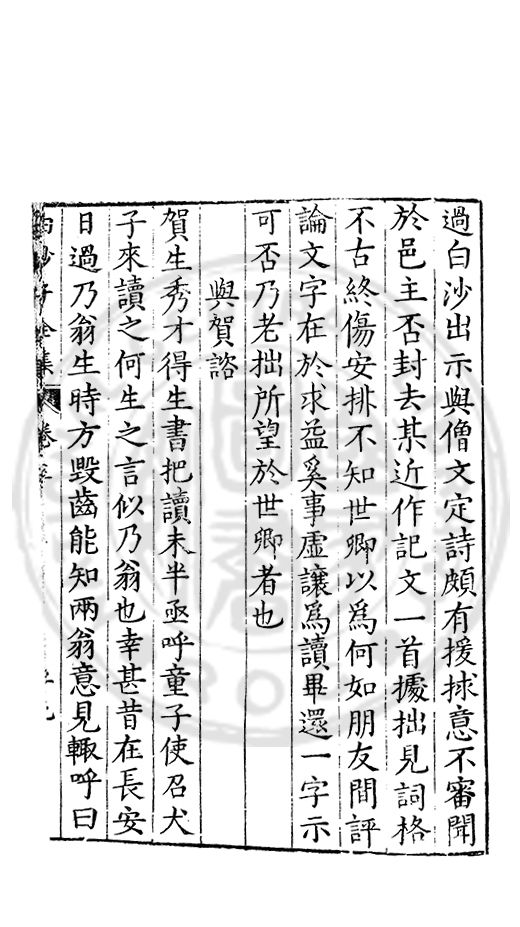 過白沙出示與僧文定詩頗有援捄意不審聞
於邑主否封去某近作記文一首據拙見詞格
不古終傷安排不知世卿以爲何如朋友間評
論文字在於求益奚事虛讓爲讀畢還一字示
可否乃老拙所望於世卿者也
與賀諮
賀生秀才得生書把讀未半亟呼童子使召犬
子來讀之何生之言似乃翁也幸甚昔在長安
日過乃翁生時方毀齒能知兩翁意見輙呼曰
白沙子全集 卷